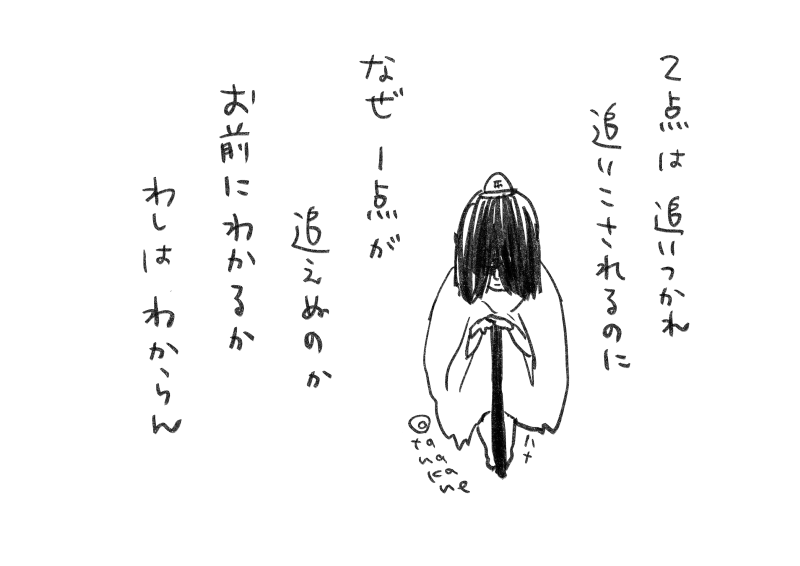 2点は 追いつかれ
追いこされるのに
なぜ 1点が
追えぬのか
お前に わかるか
わしは わからん
@tanakane